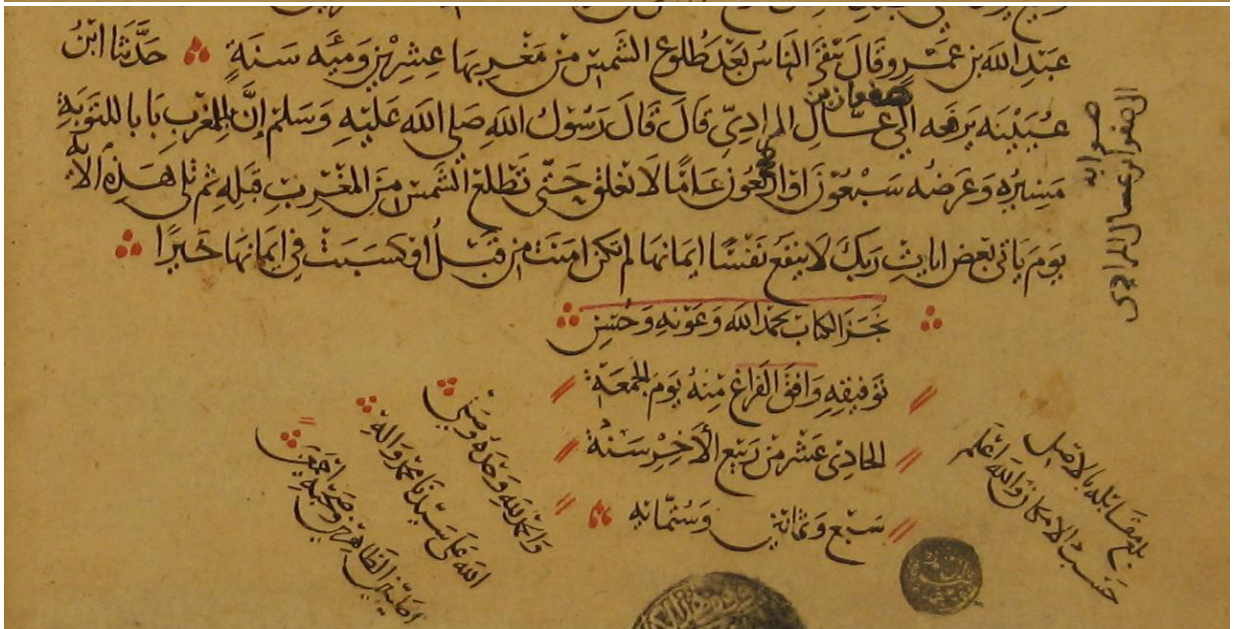 عبد الله بن عمرو قال يبقى الناس بعد طلوع الشمس من مغربها عشرين ومئه سنة حدثنا ابن
عيينه يرفعه الى عسال المرادي قال قال رسول الله صلى الله عليه وسلم إن للمغرب بابا للتوبة
صفوان بن
مسيره وعرضه سبعون او اربعون عاما لا تغلق حتى تطلع الشمس من المغرب قبله ثم تلى هذه الايه
يوم ياتي بعض ايات ربك لا ينفع نفسا ايمانها لم تكن امنت من قبل او كسبت في ايمانها خيرا
صوابه
الصفوان عسال المرادي
نجز الكتاب بحمد الله وعونه وحسن
توفيقه وافق الفراغ منه يوم الجمعة
الحادي عشر من ربيع الأخر سنة
سبع وثمانين وستمائه
والحمد لله وحده وصلى
الله على سيدنا محمد واله
الطاهرين وصحبه اجمعين
بلغ مقابله بالاصل
حسب الامكان والله اعلم